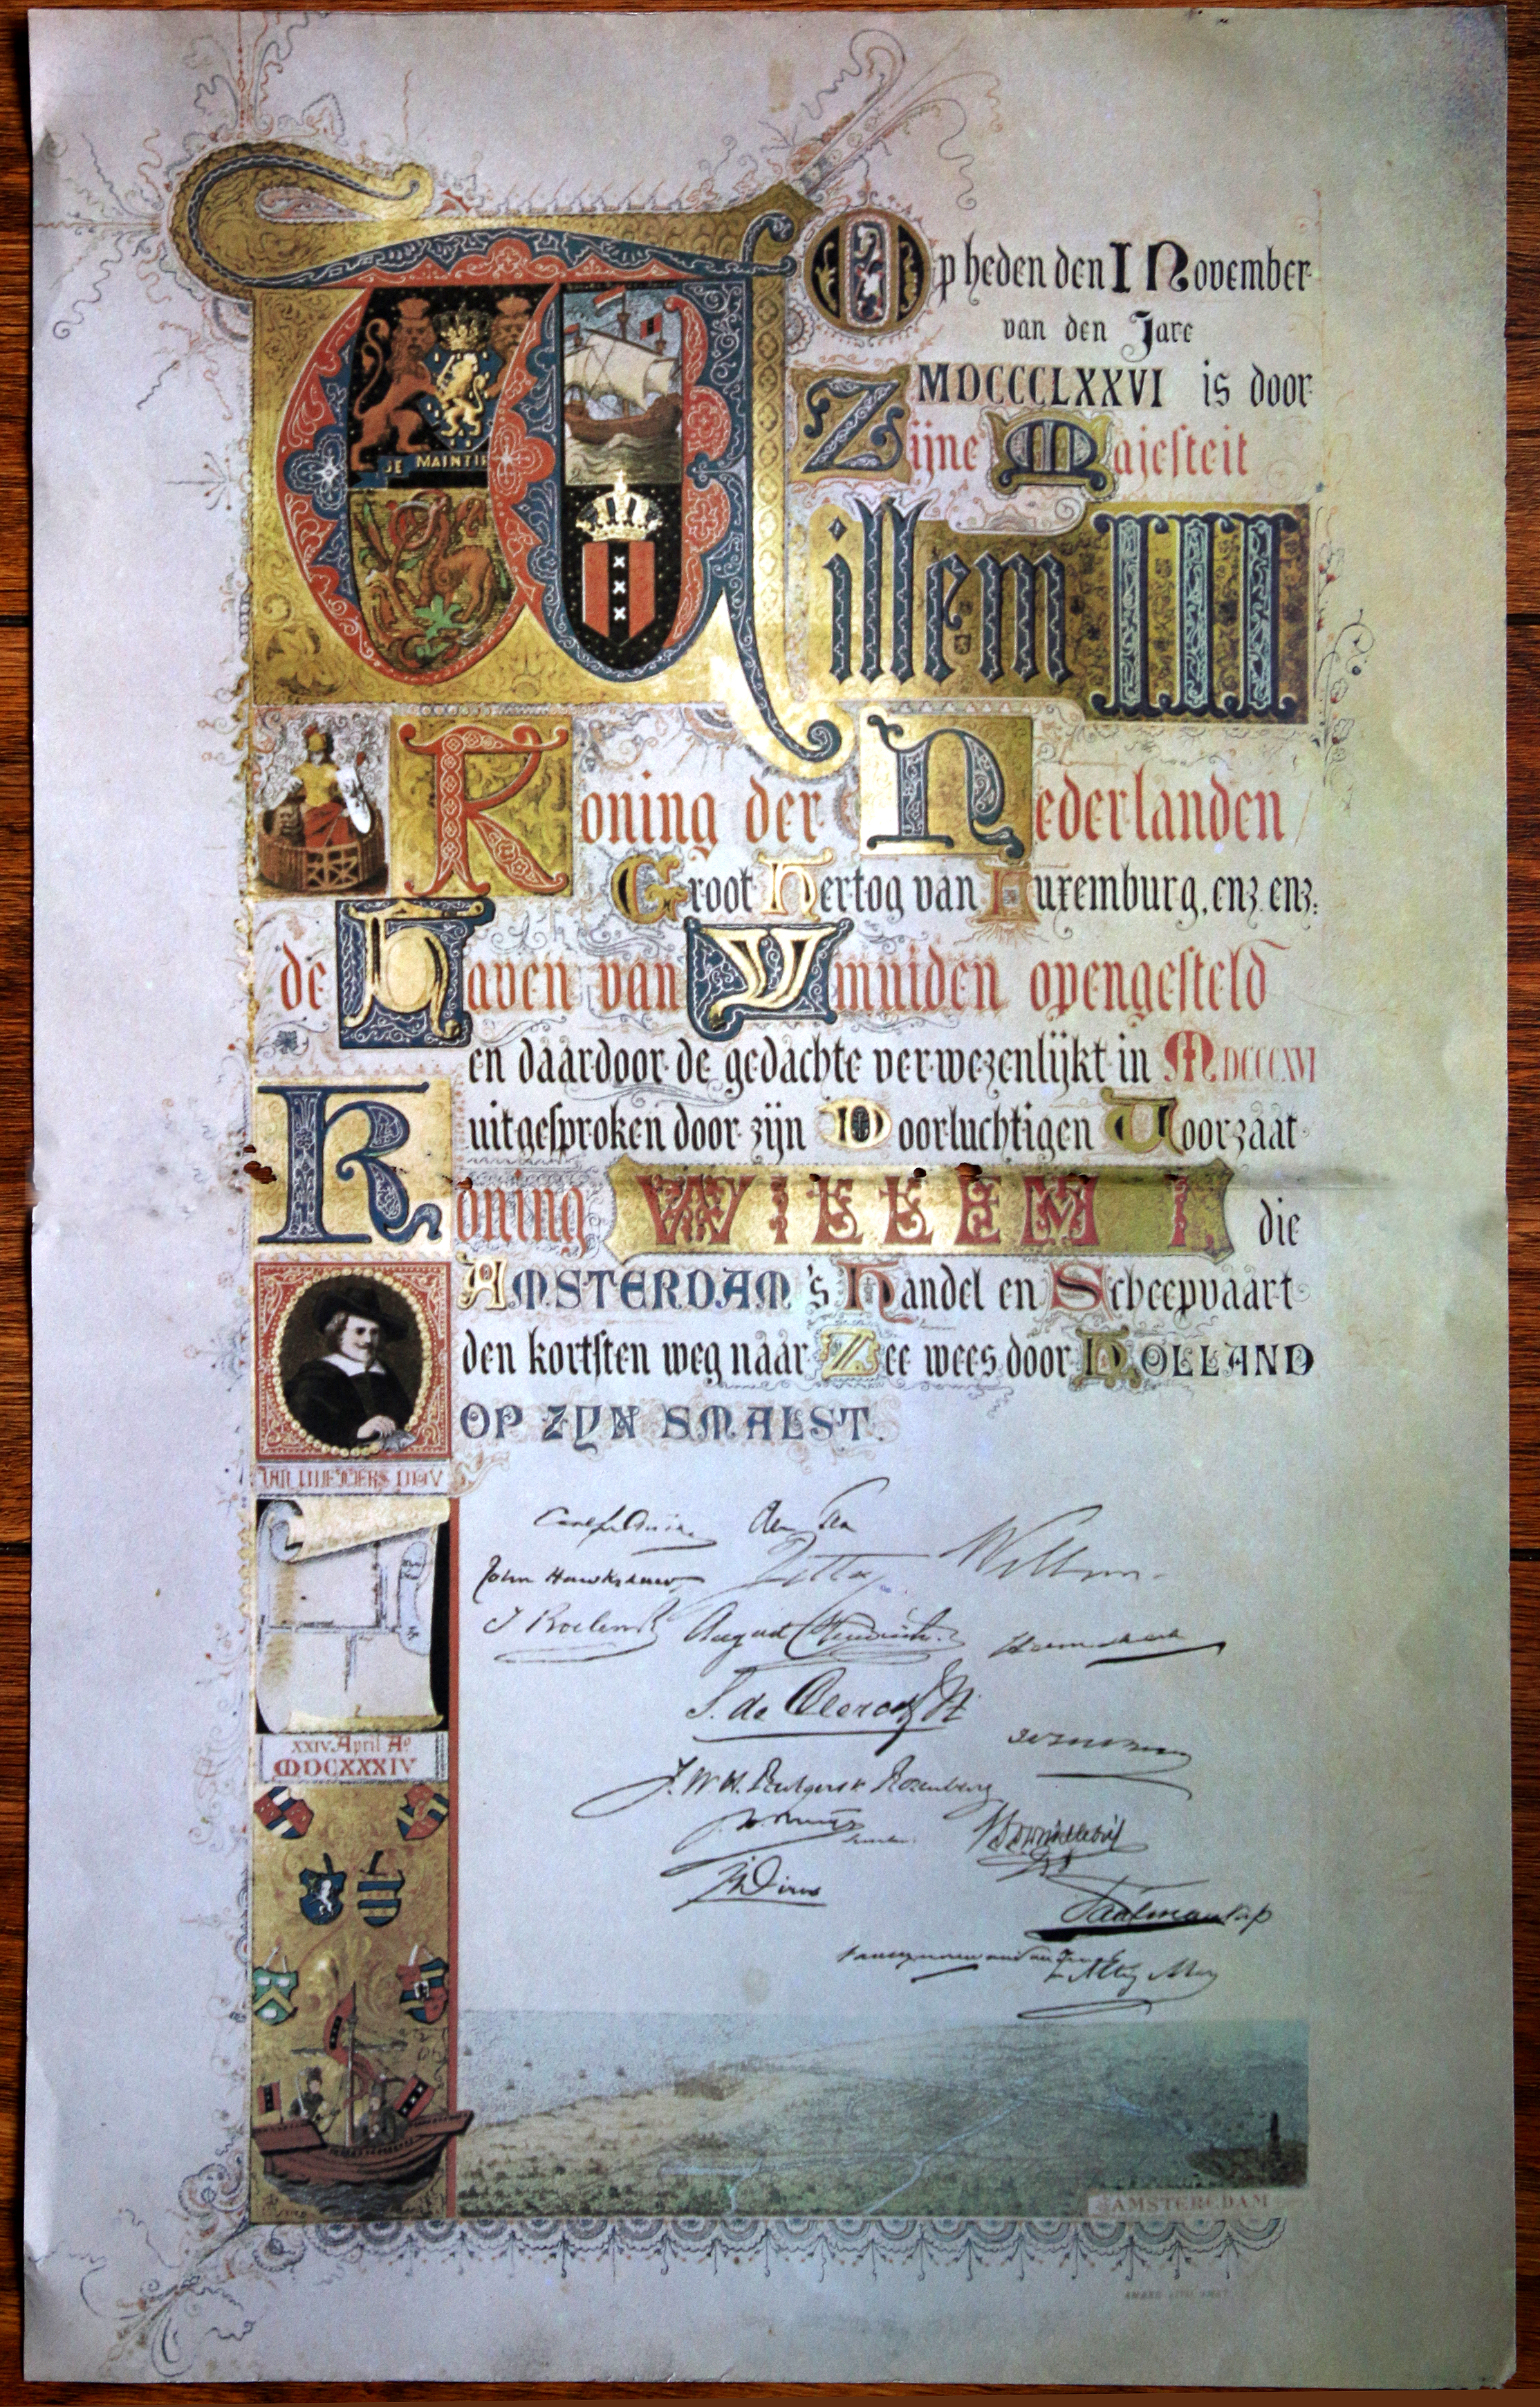 Op heden den I November
van den Jare
MDCCCLXXVI is door
Zijne Majesteit
JE MAINTIE
Willem III
Koning der Nederlanden
Groot Hertog van Luxemburg, enz. enz:
de Haven van Ymuiden opengesteld
en daardoor de gedachte verwezenlijkt in MDCCCXVI
uitgesproken door zijn Doorluchtigen Voorzaat
Koning WILLEM I. die
AMSTERDAM's Handel en Scheepvaart
den kortsten weg naar Zee wees door HOLLAND
OP ZYN SMALST.
XXIV April Ao
MDCXXXIV
John Hawkshaw
Willem
August Hendrichs
S. de Clercq
J.W.H. Rutgers v. Rozenburg
J. Dirks
AMSTERDAM